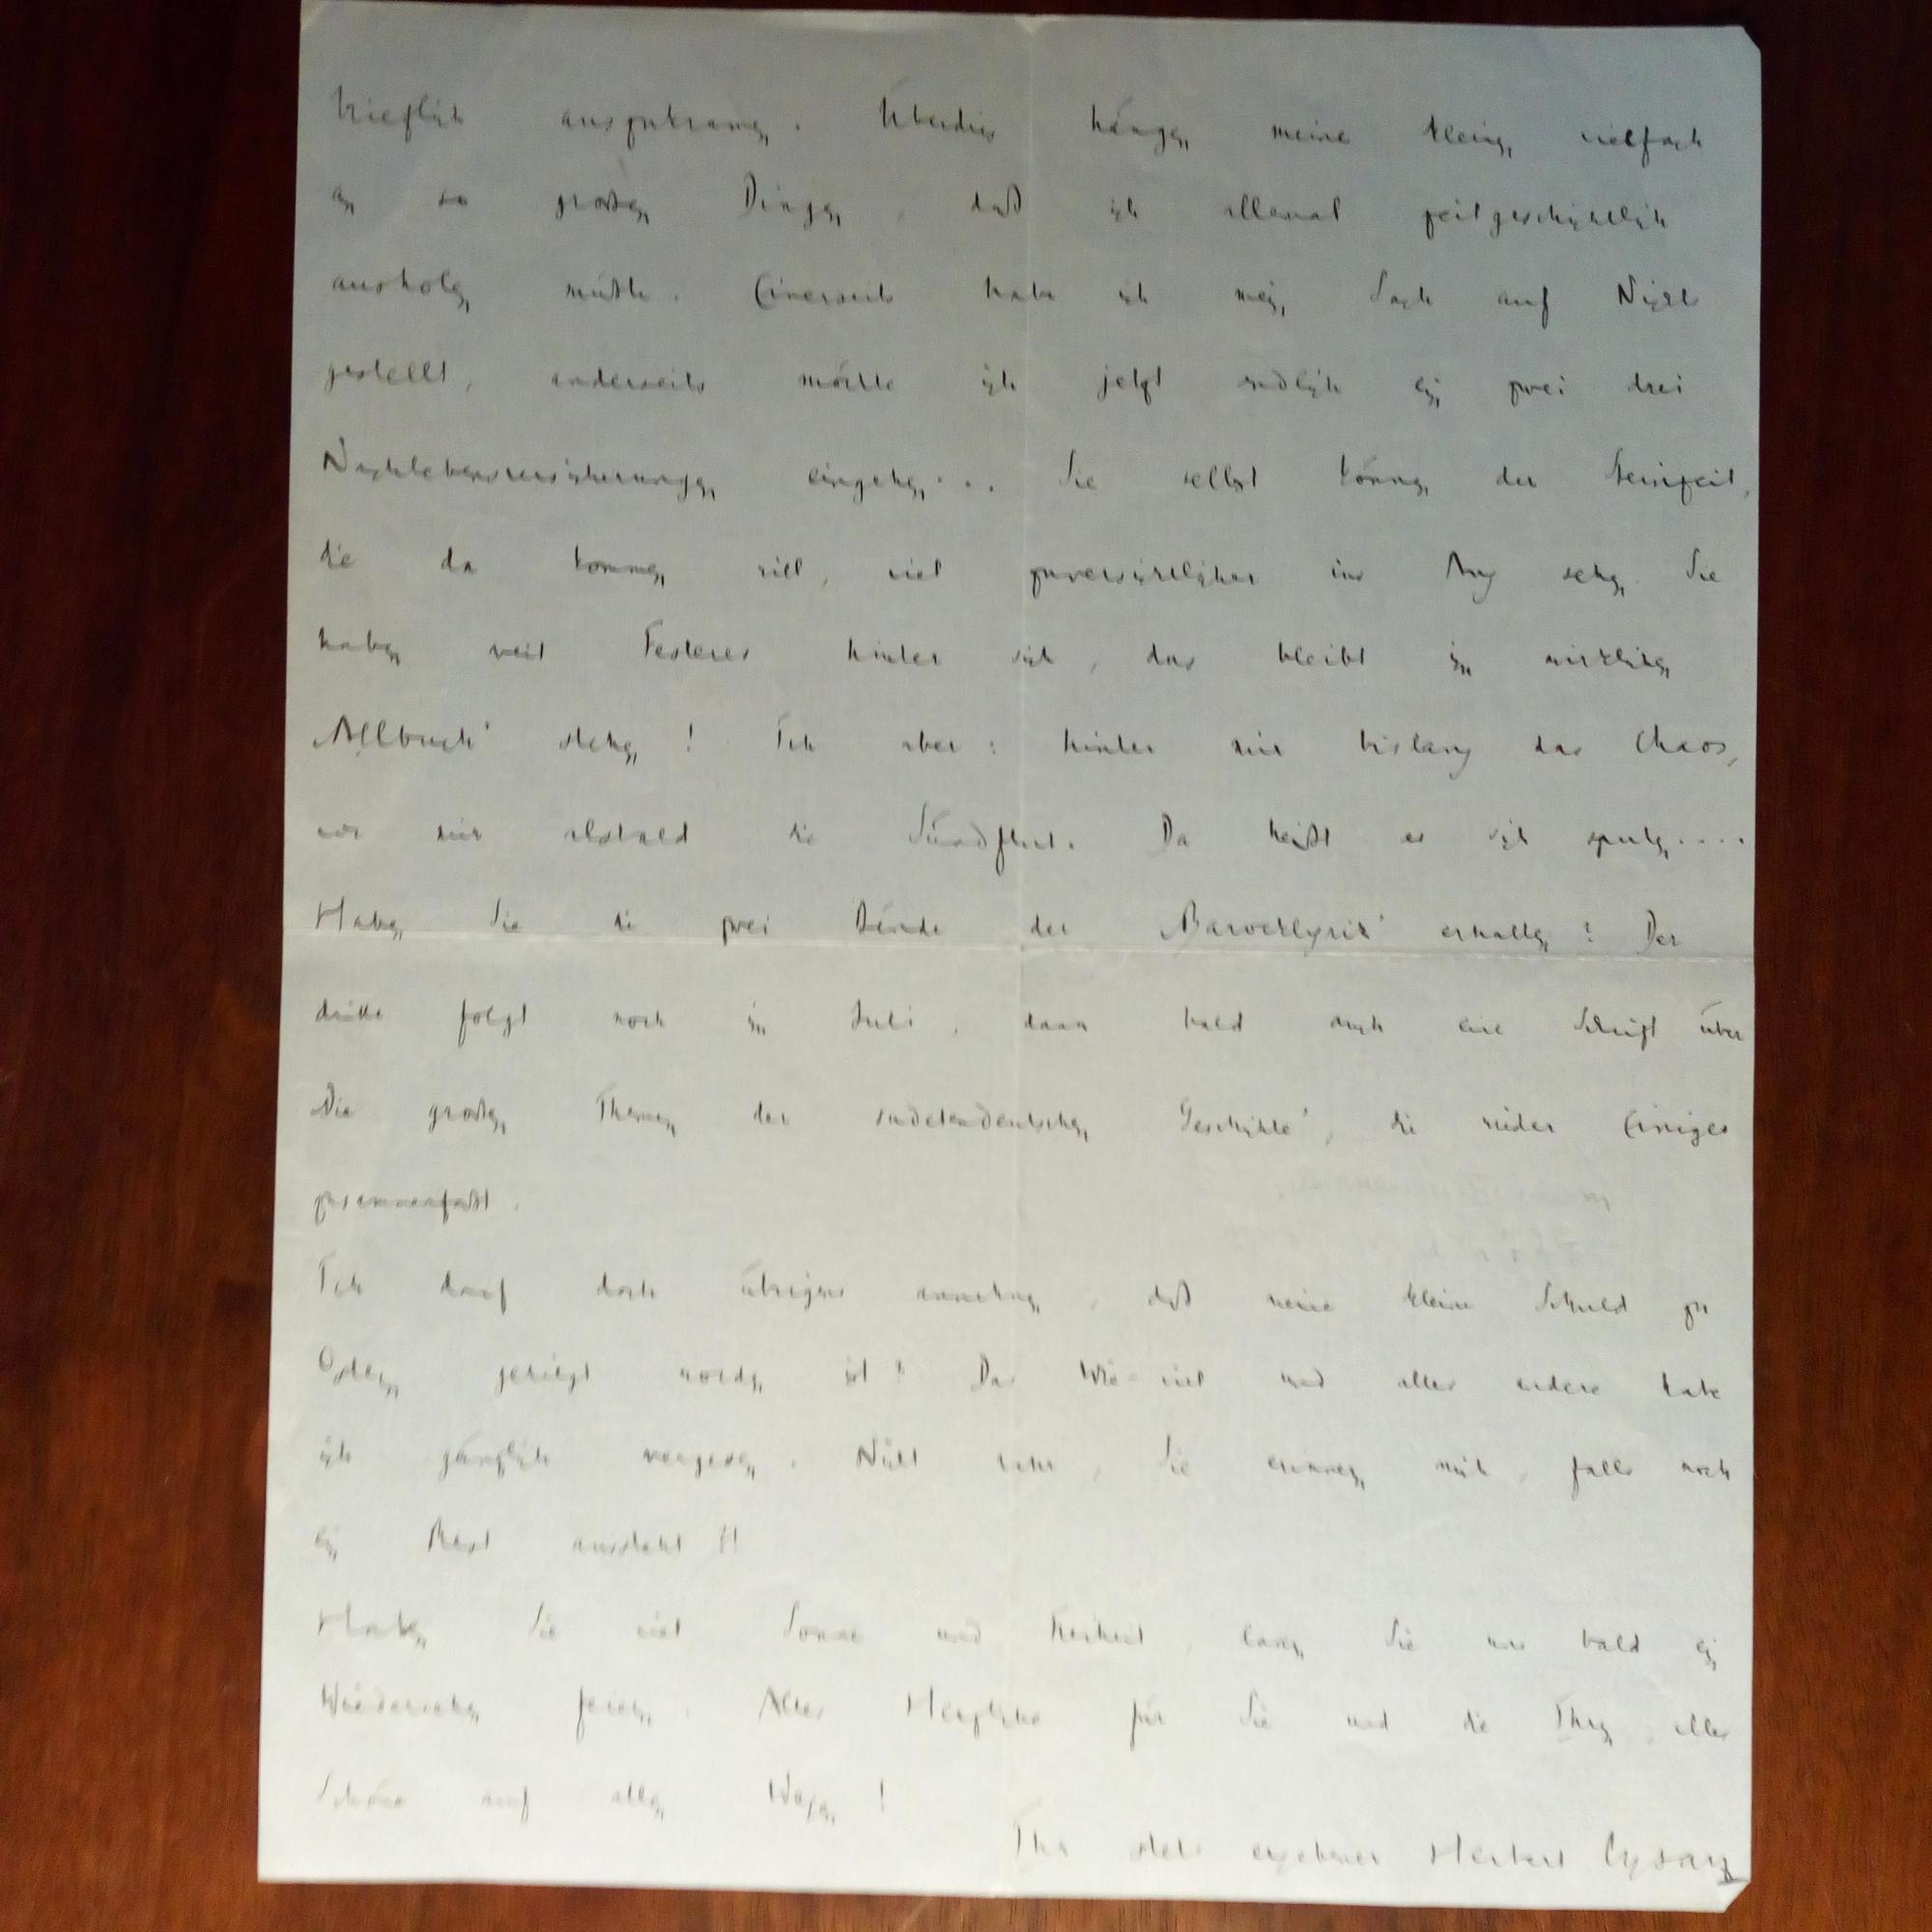 brieflich auszukramen. Überdies hängen meine kleinen vielfach
an so großen Dingen, daß ich allemal zeitgeschichtlich
ausholen müßte. Einerseits habe ich mein Sach auf Nichts
gestellt, anderseits möchte ich jetzt endlich ein zwei drei
Nachlebensversicherungen eingehen... Sie selbst können der Steinzeit,
die da kommen will, viel zuversichtlicher ins Aug sehen. Sie
haben weit Festeres hinter sich, das bleibt im wirklichen
‚Allbuch' stehen! Ich aber: hinter mir bislang das Chaos,
vor mir alsbald die Sündflut. Da heißt es sich sputen....
Haben Sie die zwei Bände der ‚Barocklyrik' erhalten? Der
dritte folgt noch im Juli, dann bald auch eine Schrift über
‚Die großen Themen der sudetendeutschen Geschichte', die wieder Einiges
zusammenfaßt.
Ich darf doch übrigens annehmen, daß meine kleine Schuld zu
Ostern getilgt worden ist? Das Wie-viel und alles andere habe
ich gänzlich vergessen. Nicht wahr, Sie erinnern mich, falls noch
ein Rest aussteht?!
Haben Sie viel Sonne und Freiheit, lassen Sie uns bald ein
Wiedersehen feiern. Alles Herzliche für Sie und die Ihren, alles
Schöne auf allen Wegen!
Ihr stets ergebener Herbert Cysarz